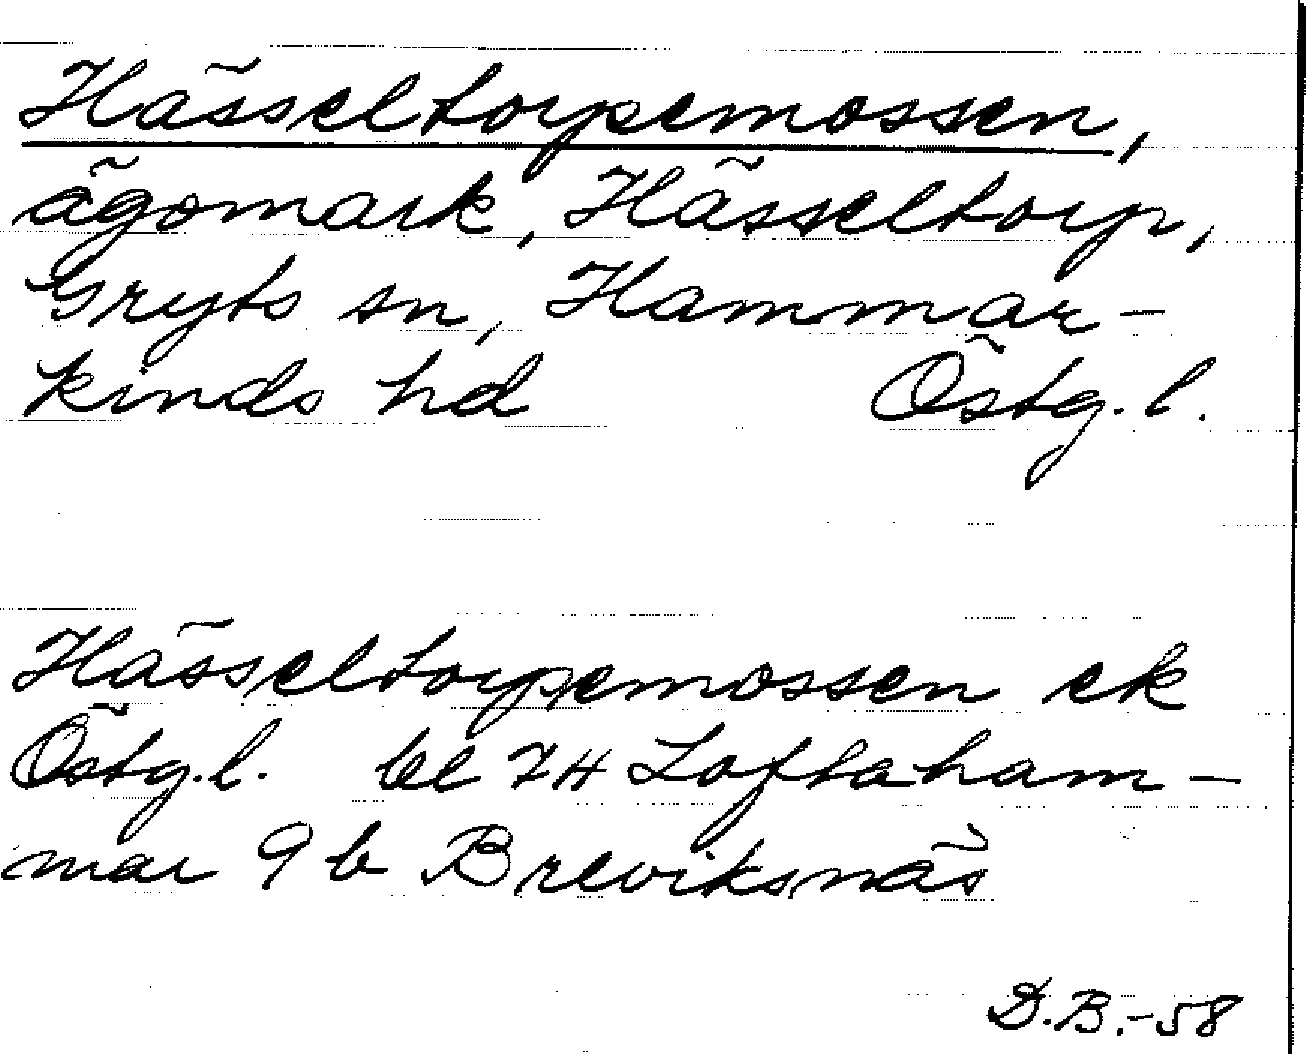 Hässeltorpemossen,
ägomark, Hässeltorp,
Gryts sn, Hammar-
kinds hd Östg. l.
Hässeltorpemossen ek
Östg. l. bl 7H Loftaham-
mar 9 b Breviksnäs
D.B.-58